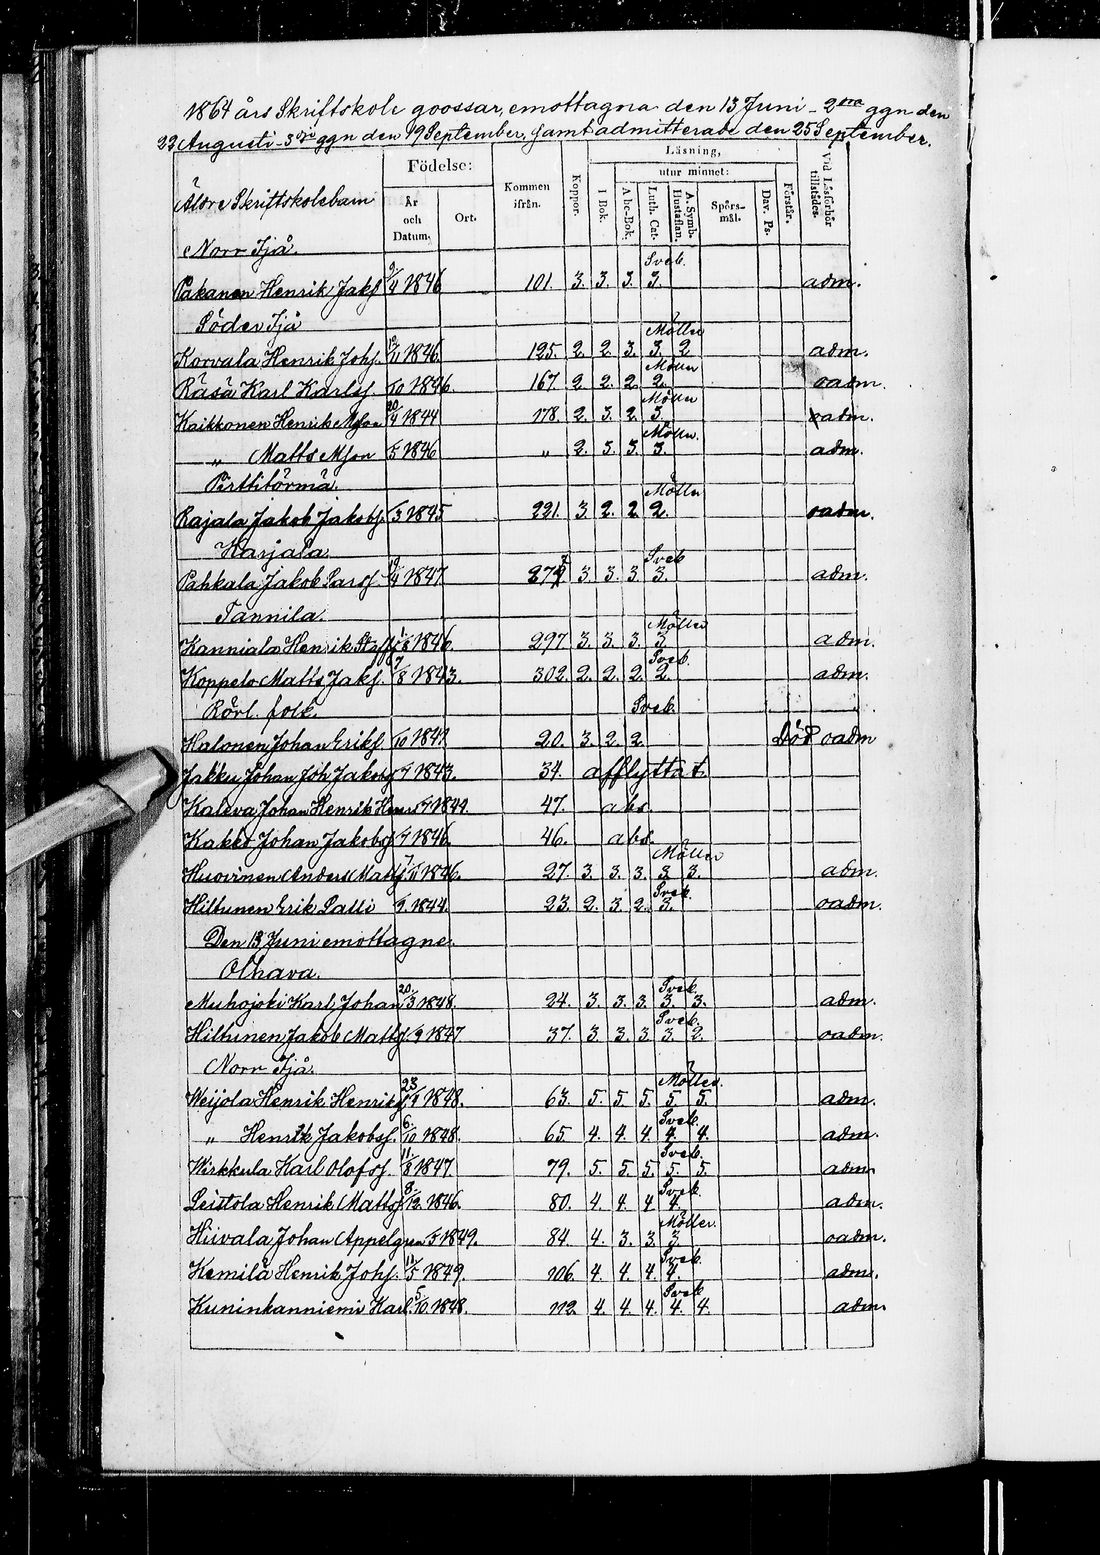 1864 års Skriftskole gossar, emottagna den 13 Juni - 2dra ggn den
22 Augusti - 3dje ggn den 19 September, samt admitterade den 25 September.
Födelse:
År och Datum.
Ort.
Kommen ifrån.
Koppor.
Läsning,
I Bok.
utur minnet:
Abc-Bok.
Luth. Cat.
A. Symb. Hustaflan.
Spörs-mål.
Dav. Ps.
Förstår.
Vid Läsförhör tillstädes.
Äldre Skriftskolebarn
Norr Ijå
Sveb.
Pakanen Henrik Jakj 2/4 1846 101. 3. 3. 3. 3. adm.
Söder Ijå
Möller
Korvala Henrik Johj. 12/11 1846. 125. 2. 2. 3. 3. 2 adm.
Möller
Räsä Karl Karlsj. /10 1846. 167 2 2. 2. 2. oadm.
Möller
Kaikkonen Henrik Mson 20/4 1844 178. 2. 3. 2. 3. oadm.
Möller.
„ Matts Mson /5 1846 „ 2. 3. 3. 3. adm.
Pirttitörmä.
Möller
Rajala Jakob Jakobsj. /3 1845 221. 3 2. 2. 2. oadm.
Karjala
Sveb
Pahkala Jakob Larsj. /4 1847. 3. 3. 3. 3. adm.
Tannila.
Möller
Kanniala Henrik Staffj 1/8 1846. 297 3. 3. 3. 3 adm.
Sveb.
Koppelo Matts Jakj. 7/8 1843. 302. 2. 2. 2. 2. adm.
Rörl. folk. Sveb.
Halonen Johan Eriksj. /10 1841 20. 3. 2. 2. Död oadm
Jakku Johan Joh Jakobsj 1843. 34. afflyttat.
Kaleva Johan Henrik Henr. 1844. 47. abs.
Kakko Johan Jakobsj 1846. 46. abs.
Möller
Huovinen Anders Matts 17/11 1846. 27. 3. 3. 3. 3. 3. adm.
Sveb.
Hiltunen Erik Lalli 1844. 23. 2. 3. 2. 3. oadm.
Den 13 Juni emottagne.
Olhava.
Sveb.
Muhojoki Karl Johan 20/3 1848. 24. 3. 3. 3. 3. 3. adm.
Sveb.
Hiltunen Jakob Mattsj. 9 1847. 37. 3. 3. 3 3. 2. oadm.
Norr Ijå.
Möller.
Weijola Henrik Henriksj 23/ 1848. 63. 5. 5. 5. 5. 5. adm.
Sveb.
„ Henrik Jakobsj. 6/10 1848. 65. 4. 4. 4. 4. 4. adm.
Sveb.
Wirkkula Karl Olofsj. 11/8 1847 79. 5. 5. 5. 5. 5. adm
Sveb.
Leistola Henrik Mattsj 8/12 1846. 80. 4. 4. 4. 4. adm.
Möller.
Hiivala Johan Appelgren 5 1849. 84. 4. 3. 3. 3. oadm.
Sveb.
Kemilä Henrik Johj. 11/5 1849. 106. 4. 4. 4. 4. adm.
Sveb
Kuninkanniemi Karl 5/10 1848. 112 4. 4. 4. 4. 4. adm